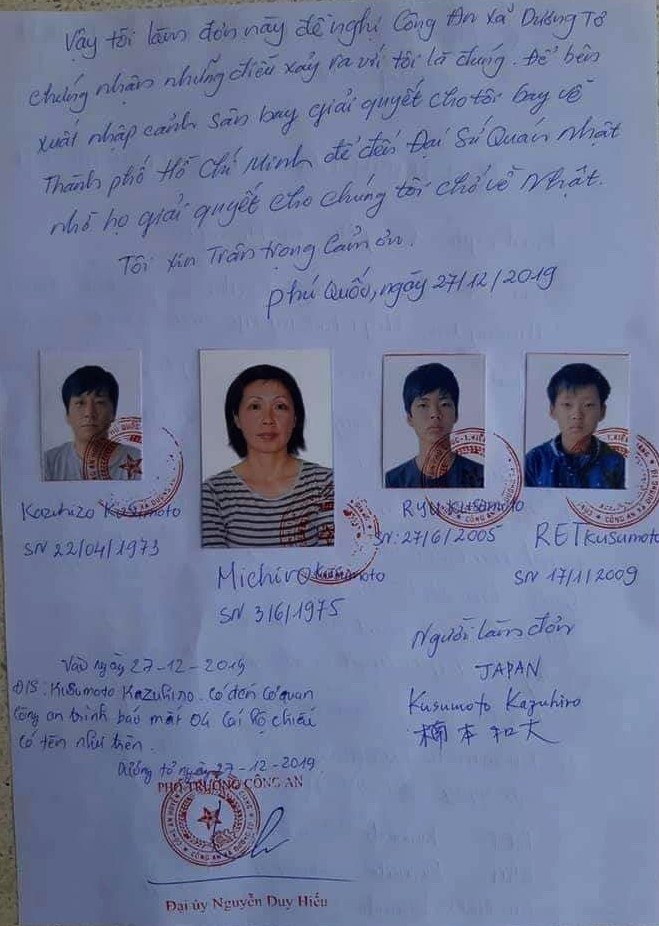 Vậy tôi làm đơn này đề nghị Công An xã Dương Tơ
chứng nhận những điều xảy ra với tôi là đúng. Để bên
xuất nhập cảnh Sân bay giải quyết cho tôi bay về
Thành phố Hồ Chí Minh để đến Đại Sứ Quán Nhật
nhờ họ giải quyết cho chúng tôi chở về Nhật.
Tôi xin Trân trọng Cảm ơn.
Phú Quốc, ngày 27/12/2019
Kazuhizo Kusumoto
SN 22/04/1973
Michiro Kusumoto
SN 3/6/1975
RYU Kusumoto
SN: 27/6/2005
RET Kusumoto
SN 17/1/2009
Người làm đơn
JAPAN
Kusumoto Kazuhiro
楠本和大
Vào ngày 27-12-2019
Đ/S: Kusumoto Kazuhiro. có đến cơ quan
Công an trình báo mất 04 cái hộ chiếu
có tên như trên.
Dương tơ ngày 27-12-2019
PHÓ TRƯỞNG CÔNG AN
Đại úy Nguyễn Duy Hiếu